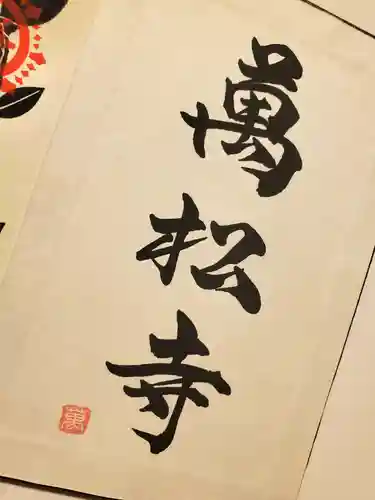 萬松寺
萬